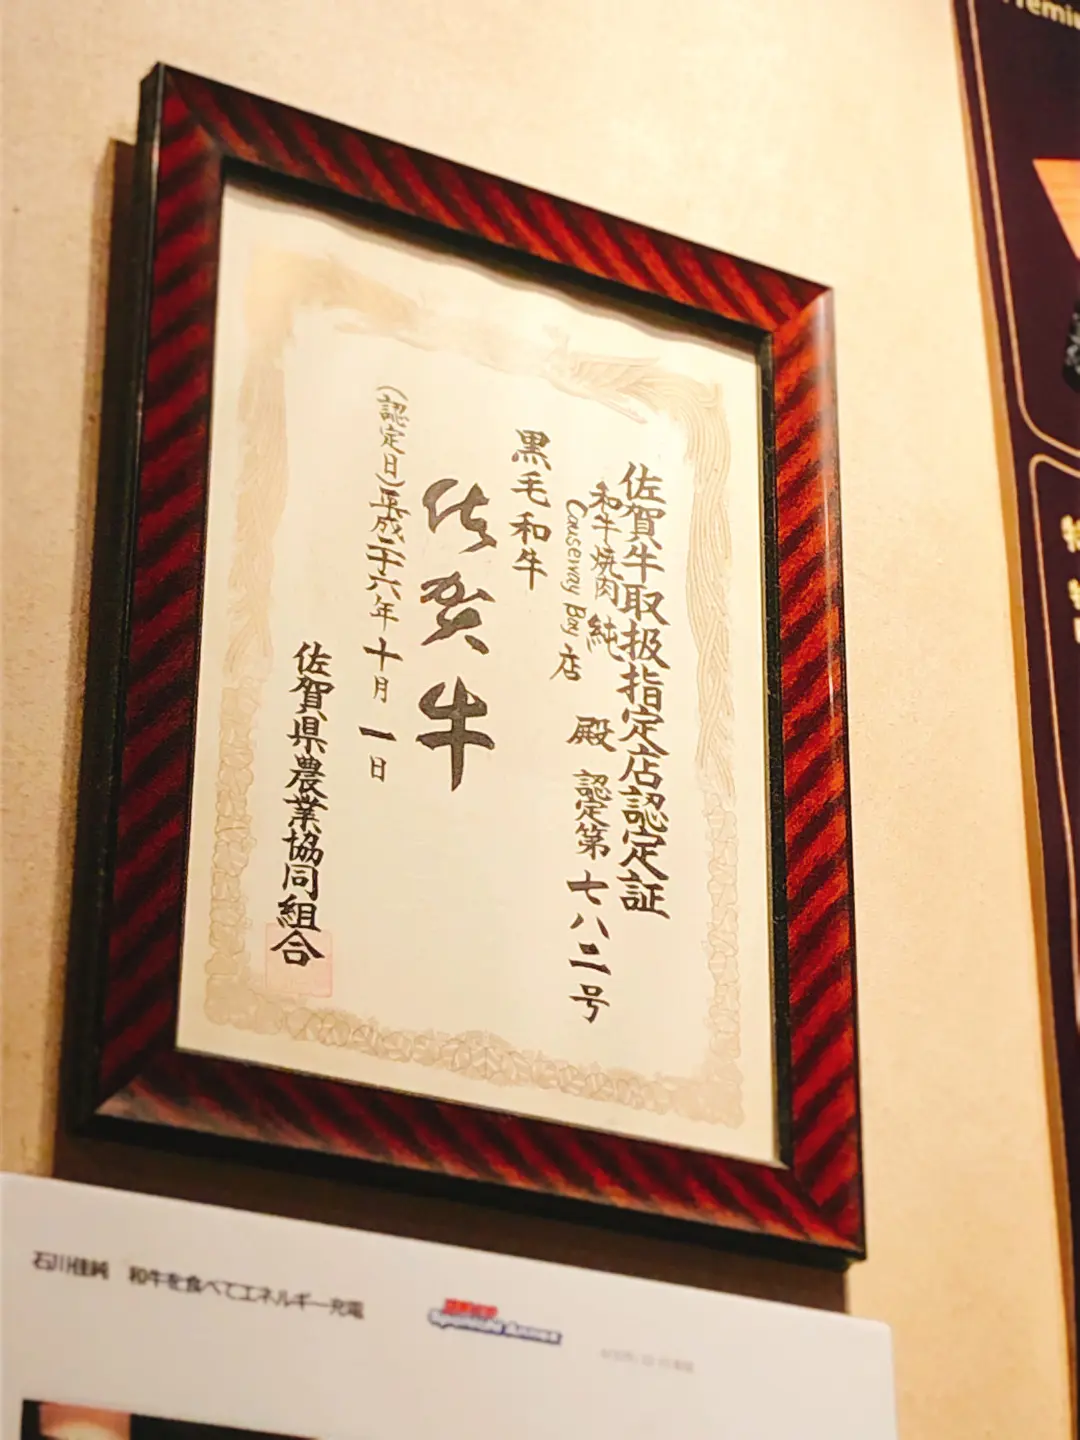 佐賀牛取扱指定店認定証
和牛焼肉 純
Causeway Bay 店 殿
認定第七八二号
黒毛和牛
佐賀牛
(認定日)平成二十六年十月一日
佐賀県農業協同組合
石川佳純 和牛を食べてエネルギー充電